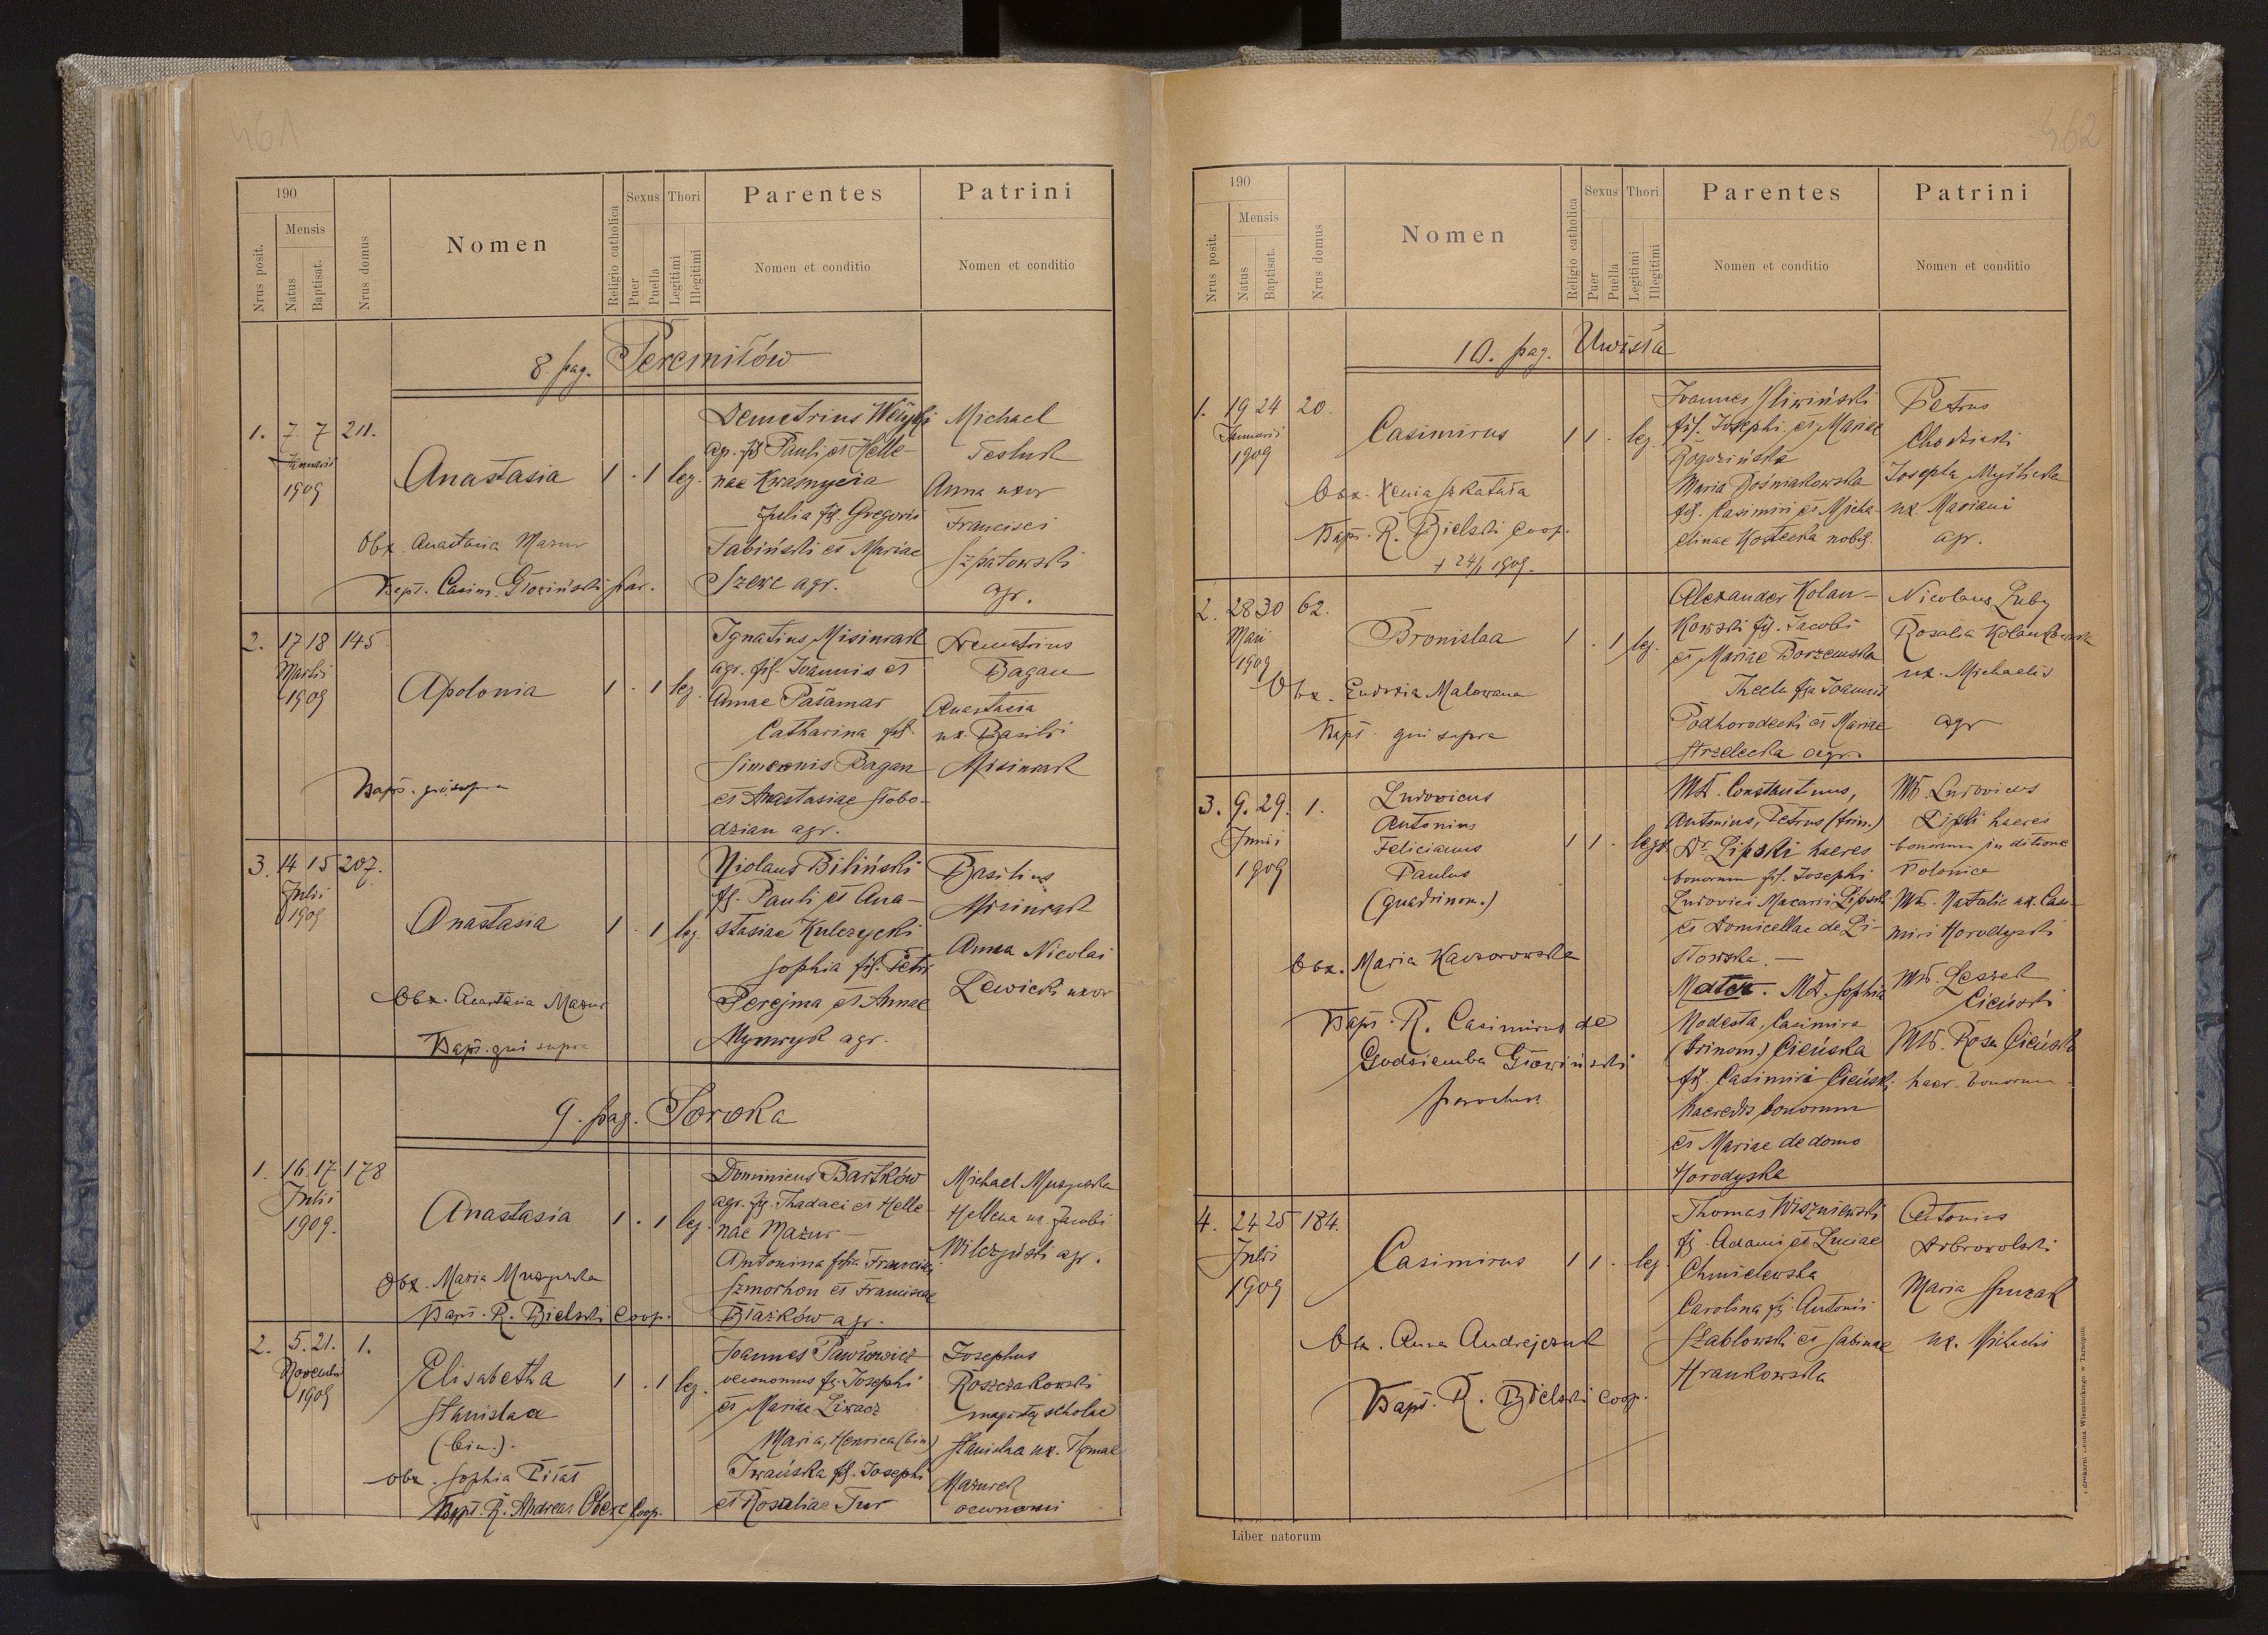 461
190
Nrus posit.
Mensis
Natus
Baptisat.
Nrus domus
Nomen
Religio catholica
Sexus
Puer
Puella
Thori
Legitimi
Illegitimi
Parentes
Nomen et conditio
Patrini
Nomen et conditio
8. pag. Peremiłów
1. 7 7 211.
Januarii
1909
Anastasia 1 . 1 leg.
Obx. Anastasia Mazur
Bapt. Casim. Głowiński par.
Demetrius
agr. fil. Pauli et Helle-
nae Kwasnycia
Julia fil. Gregorii
Fabiński et Mariae
Szewc agr.
Michael
Tesluk
Anna uxor
Francisci
Szpatowski
agr.
2. 17 18 145
Martii
1909
Apolonia 1 . 1 leg.
Bapt. qui supra
Ignatius Misiurak
agr. fil. Joannis et
Annae
Catharina fil.
Simeonis Bagan
et Anastasiae Słobo-
dzian agr.
Demetrius
Bagan
Anastasia
ux. Basilii
Misiurak
3. 14 15 207.
Julii
1909
Anastasia 1 . 1 leg.
Obx. Anastasia Mazur
Bapt. qui supra
Niolaus Biliński
fil. Pauli et Ana-
stasiae Kulczycki
Sophia fil. Petri
Perejma et Annae
agr.
Basilius
Misiurak
Anna Nicolai
Lewicki uxor
9. pag. Soroka
1. 16 17 178
Julii
1909.
Anastasia 1 . 1 leg.
Obx. Maria
Bapt. R. Bielski Coop.
Dominicus Bartków
agr. fil. Thadaei et Helle-
nae Mazur
Antonina filia Francisci
Szmorhon et Franciscae
Błażków agr.
Michael
Hellena ux. Jacobi
Wilczyński agr.
2. 5. 21. 1.
Novembris
1909
Elisabetha 1 . 1 leg.
Stanislaa
(bin.).
Obx. Sophia Piłat
Bapt. R. Andreas Coop.
Joannes Pawłowicz
oeconomus fil. Josephi
et Mariae Liwacz
Maria, Henrica (bin)
Iwańska fil. Josephi
et Rosaliae Tur
Josephus
Roszczakowski
magister scholae
Stanislaa ux. Thomae
Mazurek
oeconomi
462
190
Nrus posit.
Mensis
Natus
Baptisat.
Nrus domus
Nomen
Religio catholica
Sexus
Puer
Puella
Thori
Legitimi
Illegitimi
Parentes
Nomen et conditio
Patrini
Nomen et conditio
10. pag. Uwisła
1. 19 24 20.
Januarii
1909
Casimirus 1 1 . leg.
Obx. Xenia Szkatuła
Bapt. R. Bielski Coop.
+ 24/1 1909.
Joannes Śliwiński
fil. Josephi et Mariae
Rogozińska
Maria Dośniakowska
fil. Casimiri et Micha-
elinae Kostecka nobil.
Petrus
Josepha
ux. Mariani
agr.
2. 28 30 62.
Maii
1909
Bronislaa 1 . 1 leg.
Obx. Eudoxia Malowana
Bapt. qui supra
Alexander Kolan-
kowski fil. Jacobi
et Mariae Borzemska
Thecla filia Joannis
Podhorodecki et Mariae
Strzelecka agr.
Nicolaus Zuby
Rosalia Kolankowska
ux. Michaelis
agr
3. 9. 29. 1.
Junii
1909
Ludovicus
Antonius
Felicianus
Paulus
(quadrinom.)
1 1 . leg.
Obx. Maria Kaczorowska
Bapt. R. Casimirus de
Godziemba Głowiński
parochus
Md. Constantinus,
Antonius, Petrus (trin.)
Dr. Lipski haeres
bonorum fil. Josephi
Ludovici Macarii Lipski
et Domicellae de Li-
stowska. —
Mater. Md. Sophia
Modesta, Casimira
(trinom.) Cieńska
fil. Casimiri Cieński
haeredis bonorum
et Mariae de domo
Horodyska
Md. Ludovicus
Lipski haeres
bonorum in ditione
Polonica
Md. Natalia ux. Casi-
miri Horodyski
Md. Leszek
Cieński
Md. Rosa Cieńska
haer. bonorum
4. 24 25 184.
Julii
1909
Casimirus 1 1 . leg.
Obx. Anna Andrejczuk
Bapt. R. Bielski Coop.
Thomas Wiszniewski
fil. Adami et Luciae
Chmielewska
Carolina fil. Antonii
Szablowski et Sabinae
Hrankowska
Antonius
Dobrowolski
Maria Spuzak
ux. Michaelis
Liber natorum